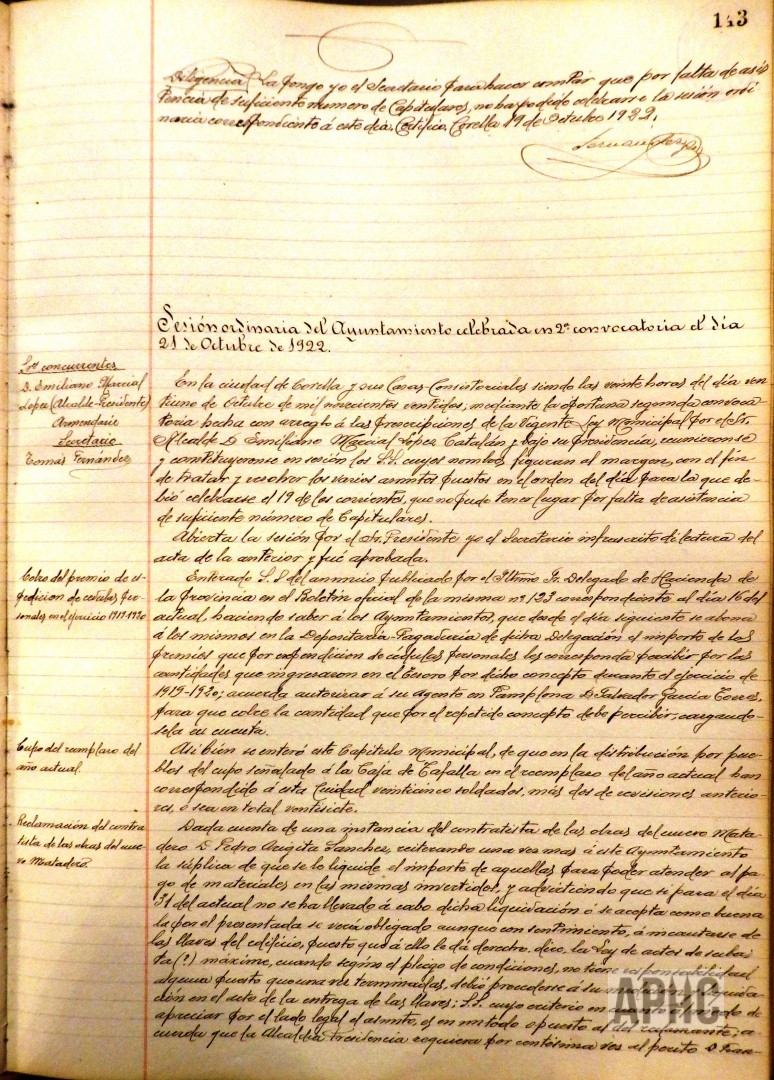 143
Diligencia. La pongo yo el Secretario para hacer constar que por falta de asis
tencia de suficiente numero de Capitulares, no ha podido celebrarse la sesión ordi
naria correspondiente á este día. Certifico. Corella 19 de Octubre 1922.
Sesión ordinaria del Ayuntamiento celebrada en 2ª convocatoria el día
21 de Octubre de 1922.
Sres concurrentes
D. Emiliano Marcial
Lopez (Alcalde-Presidente)
Armendariz
Secretario
Tomás Fernández
En la ciudad de Corella y sus Casas-Consistoriales siendo las veinte horas del día vein
tiuno de Octubre de mil novecientos veintidos, mediante la oportuna segunda convoca
toria hecha con arreglo á las prescripciones de la vigente Ley Municipal por el Sr.
Alcalde D. Emiliano Marcial Lopez Catalán y bajo su presidencia, reunieronse
y constituyeronse en sesión los S.S. cuyos nombres figuran al margen, con el fin
de tratar y resolver los varios asuntos puestos en el orden del día para la que de
bió celebrarse el 19 de los corrientes, que no pudo tener lugar por falta de asistencia
de suficiente número de Capitulares.
Abierta la sesión por el Sr. Presidente yo el Secretario infrascrito di lectura del
acta de la anterior y fué aprobada.
Cobro del premio de ex
pedicion de cédulas per
sonales en el ejercicio 1919-1920
Enterado S.S. del anuncio publicado por el Iltmo Sr. Delegado de Hacienda de
la provincia en el Boletín oficial de la misma nº 123 correspondiente al día 16 del
actual, haciendo saber á los Ayuntamientos, que desde el día siguiente se abona
á los mismos en la Depositaría-Pagaduría de dicha Delegación el importe de los
premios que por expendicion de cédulas personales les corresponda percibir por las
cantidades que ingresaron en el Tesoro por dicho concepto durante el ejercicio de
1919-1920; acuerda autorizar á su agente en Pamplona D. Salvador Garcia Torres,
para que cobre la cantidad que por el repetido concepto debe percibir; cargando-
sela en cuenta.
Cupo del reemplazo del
año actual.
Asi bien se enteró este Capitulo Municipal, de que en la distribución por pue
blos del cupo señalado á la Caja de Tafalla en el reemplazo del año actual han
correspondido á esta Ciudad veinticinco soldados, más dos de revisiones anterio-
res, ó sea en total veintisiete.
Reclamación del contra
tista de las obras del nue
vo Matadero.
Dada cuenta de una instancia del contratista de las obras del nuevo Mata-
dero D. Pedro Sanchez, reiterando una vez mas á este Ayuntamiento
la súplica de que se le liquide el importe de aquellas para poder atender al pa
go de materiales en las mismas invertidos, y advirtiendo que si para el día
31 del actual no se ha llevado á cabo dicha liquidación ó se acepta como buena
la por el presentada se vería obligado aunque con sentimiento, á incautarse de
las llaves del edificio, puesto que á ello le dá derecho, dice, la Ley de actos de subas
ta (?) máxime, cuando según el pliego de condiciones, no tiene responsabilidad
alguna puesto que una vez terminadas, debió procederse á su medicion y liquida
ción en el acto de la entrega de las llaves; S.S. cuyo criterio en modo de
apreciar por el lado legal el asunto, es en un todo opuesto al del reclamante; a-
cuerda que la Alcaldia Presidencia requiera por centésima vez al perito D. Fran-
АРИС